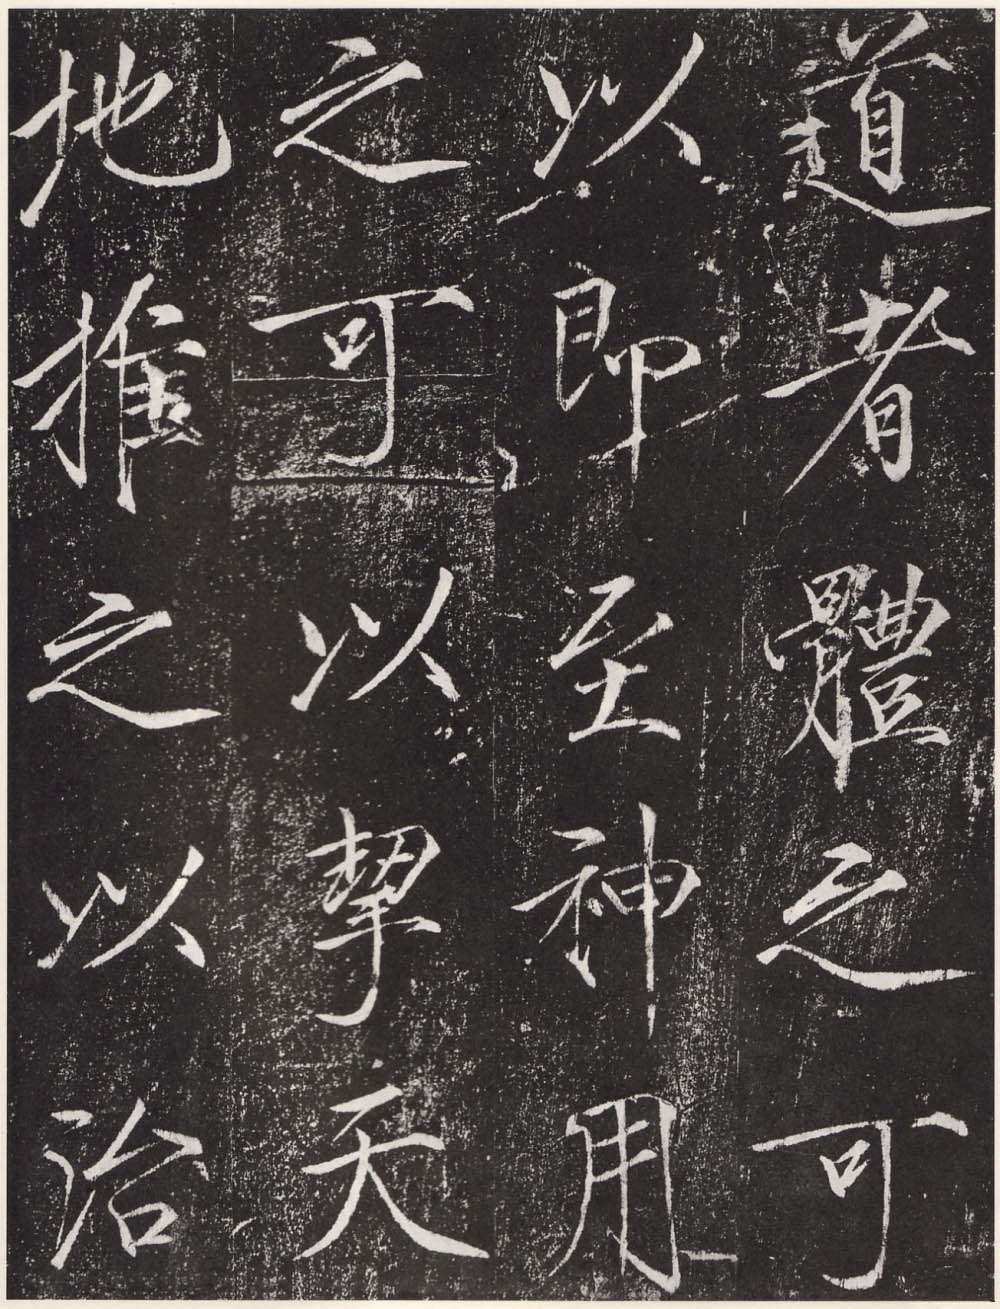 道者體之可
以即至神用
之可以挈天
地推之以治